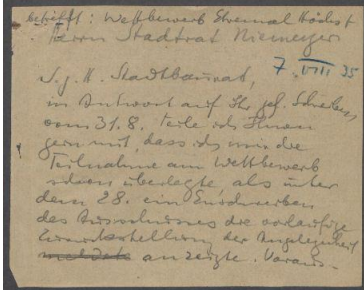 betrifft: Wettbewerb Ehrenmal Höchst
Herrn Stadtrat Niemeyer
7. VIII 35
S.g.H. Stadtbaurat,
in Antwort auf Ihr gef. Schreiben
vom 31.8. teile ich Ihnen
gern mit, dass ich mir die
Teilnahme am Wettbewerb
schon überlegte, als unter
dem 28. ein Einschreiben
des Ausschusses die vorläufige
der Angelegenheit
anzeigte. Voraus-